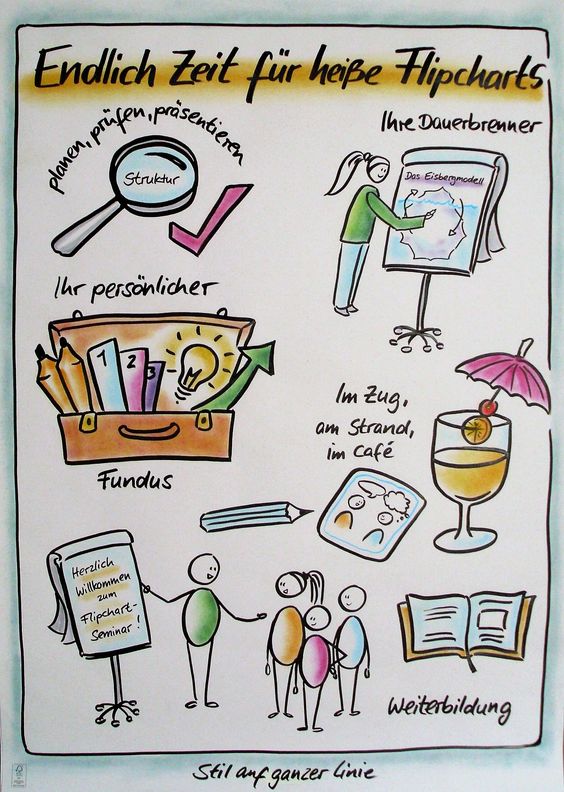 Endlich Zeit für heiße Flipcharts
planen, prüfen, präsentieren
Struktur
Ihre Dauerbrenner
Das Eisbergmodell
Ihr persönlicher
1 2 3
Fundus
Im Zug,
am Strand,
im Café
Herzlich
Willkommen
zum
Flipchart-
Seminar!
Weiterbildung
Stil auf ganzer Linie